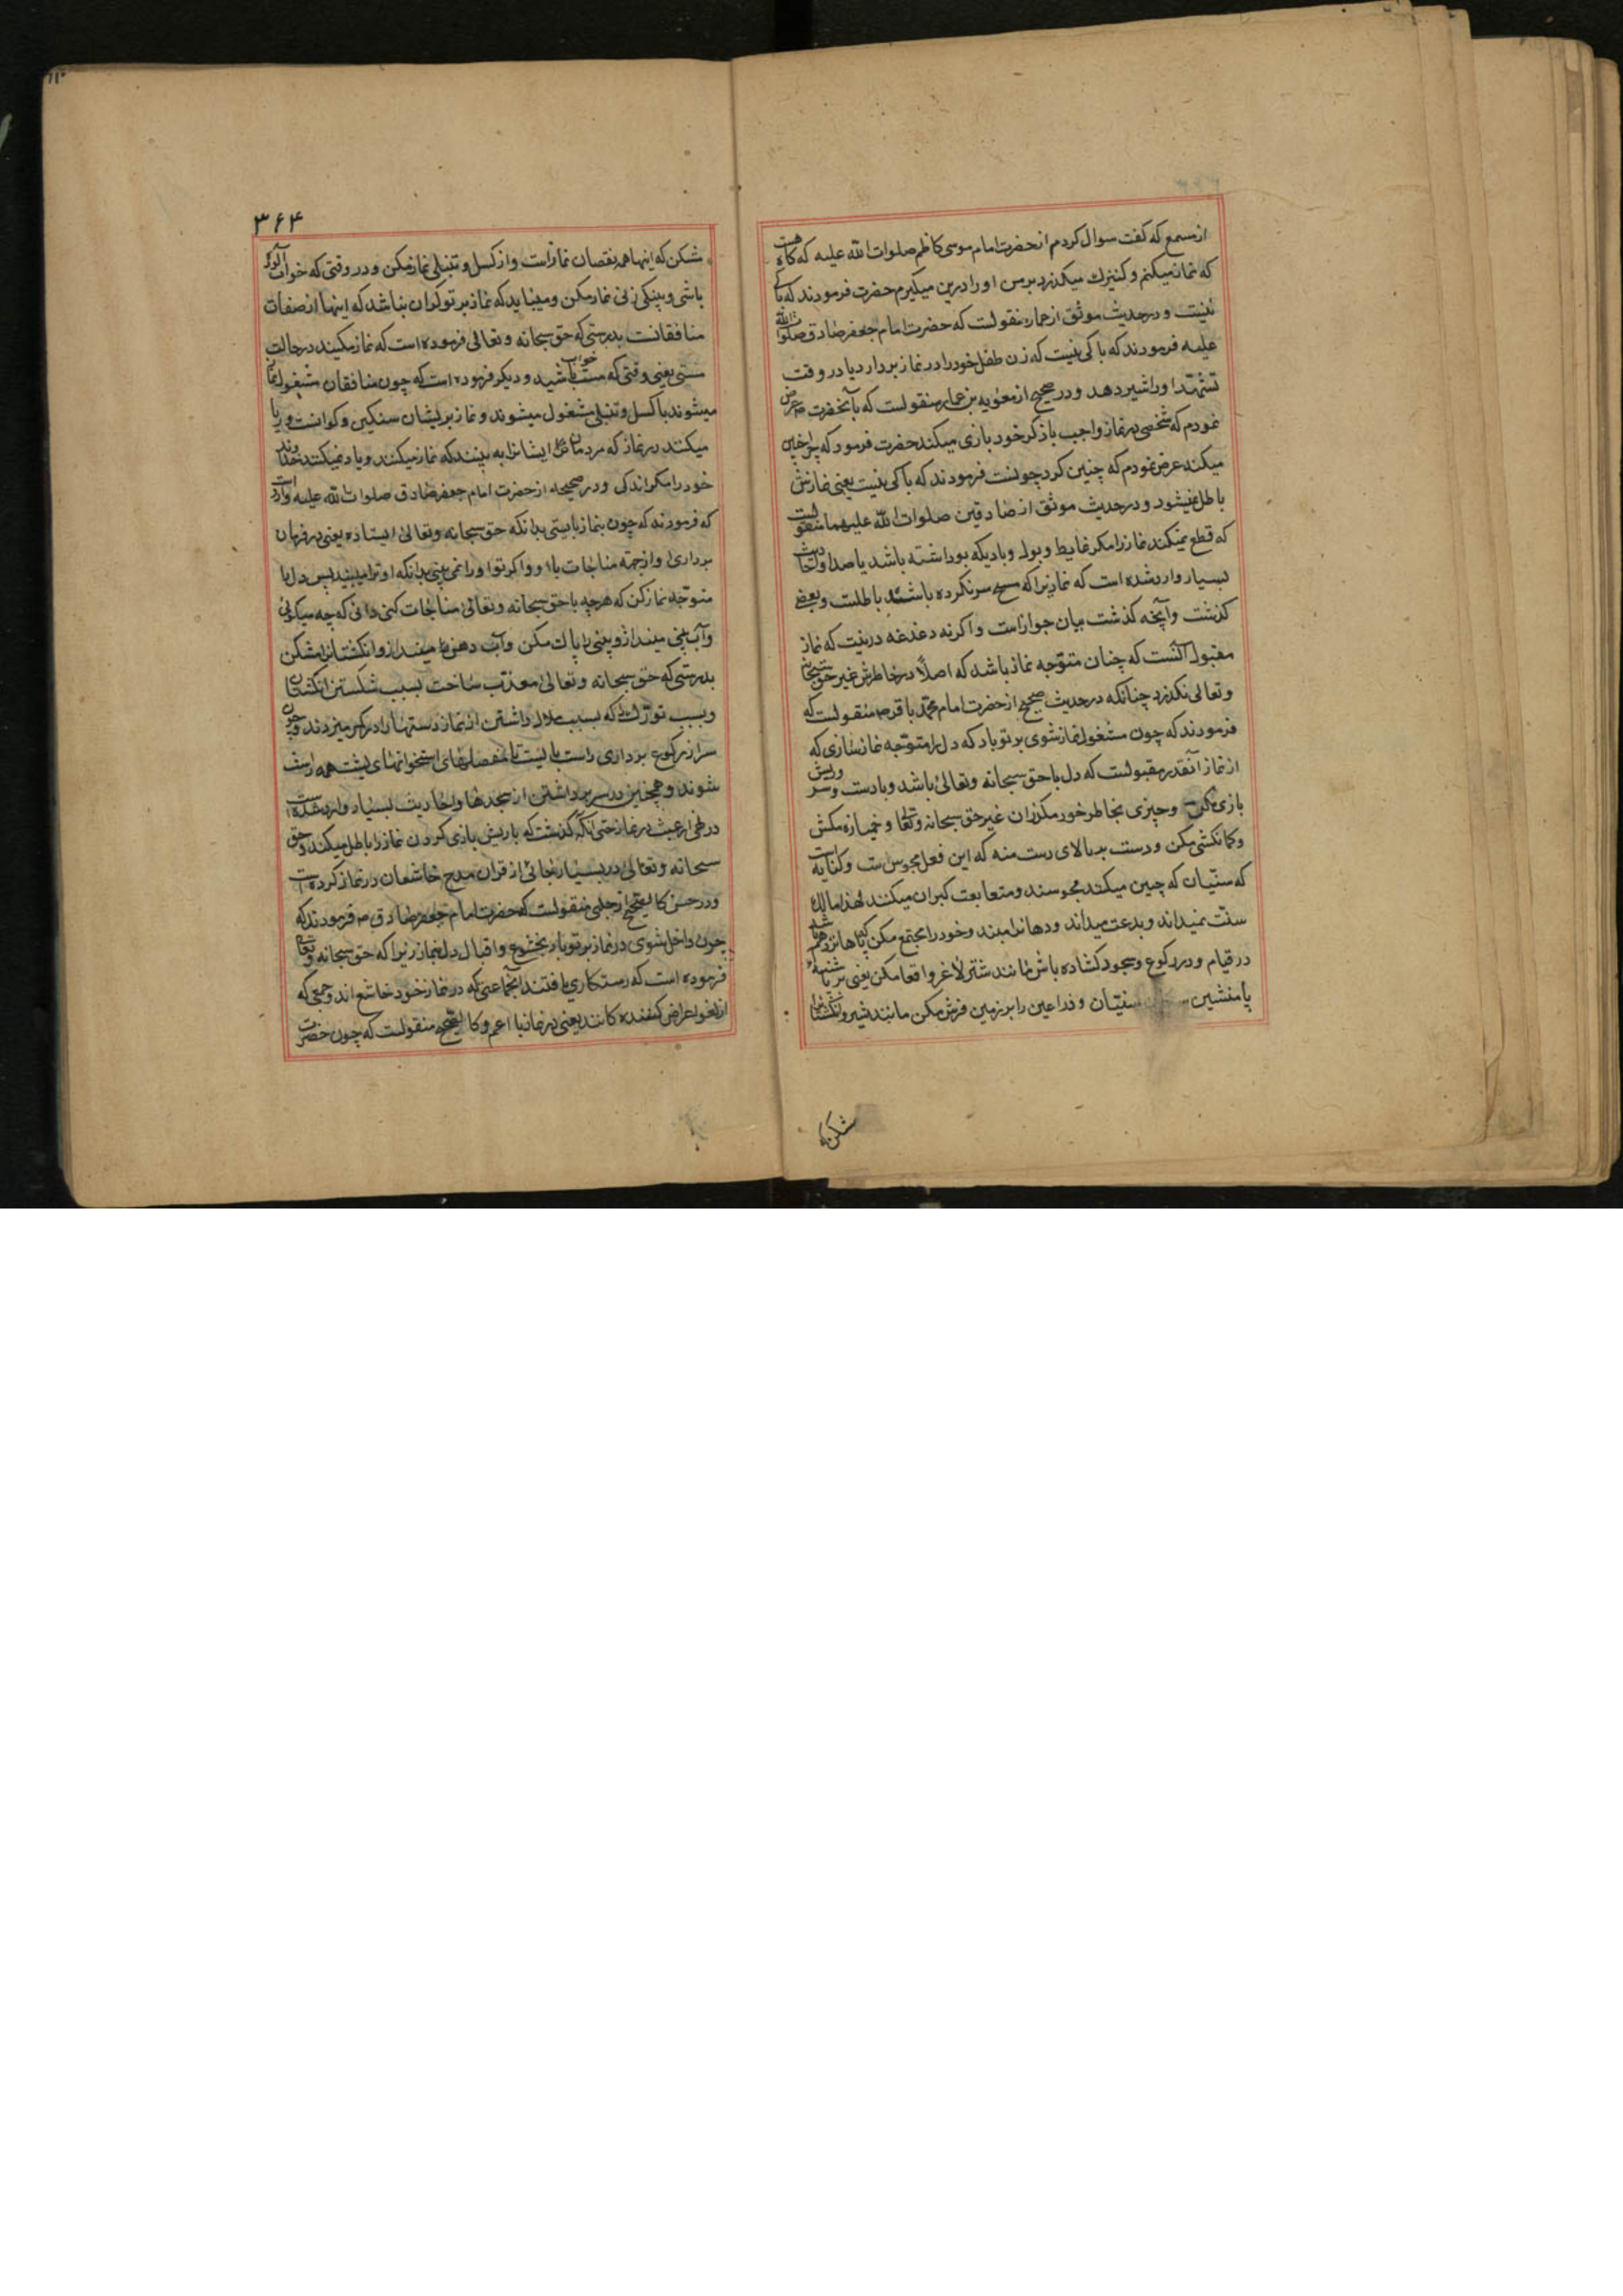 از سمع که گفت سوال کردم از حضرت امام موسی کاظم صلوات الله علیه که گاه هست
که نماز میکنم و کنیزك میگذرد بر من او را در بر میگیرم حضرت فرمودند که باکی
نیست و در حدیث موثق از عمار منقولست که حضرت امام جعفر صادق صلوات الله
علیه فرمودند که باکی نیست که زن طفل خود را در نماز بردارد یا در وقت
تشهد او را شیر دهد و در صحیح از معویه بن عمار منقولست که بآنحضرت ص عرض
نمودم که شخصی در نماز واجب با ذکر خود بازی میکند حضرت فرمود که چرا چنین
میکند عرض نمودم که چنین کرد چونست فرمودند که باکی نیست یعنی نمازش
باطل نمیشود و در حدیث موثق از صادقین صلوات الله علیهما منقولست
که قطع نمیکند نماز را مگر غایط و بول و بادیکه بو داشته باشد یا صدا و احادیث
بسیار وارد شده است که نمازیرا که مسح سر نکرده باشند باطلست و بعضی
گذشت و آنچه گذشت بیان جواز است و اگرنه دغدغه درین نیست که نماز
مقبول آنست که چنان متوجه نماز باشد که اصلاً در خاطرش غیر حق سبحانه
و تعالی نگذرد چنانکه در حدیث صحیح از حضرت امام محمد باقر ص منقولست که
فرمودند که چون مشغول نماز شوی بر تو باد که دل را متوجه نماز سازی که
از نماز آنقدر مقبولست که دل با حق سبحانه و تعالی باشد و با دست و سر و ریش
بازی مکن و چیزی بخاطر خود مگذران غیر حق سبحانه و تعالی و خمیازه مکش
و کمانکشی مکن و دست بر بالای دست منه که این فعل مجوس ست و کنایه است
که سنیان که چنین میکنند مجوسند و متعابعت گبران میکنند لهذا مالك
سنت نمیداند و بدعت میداند و دهانرا مبند و خود را مجتمع مکن
در قیام و در رکوع و سجود گشاده باش مانند شتر لاغر و اقعا مکن یعنی بر پاشنه
پا منشین سنیان و ذراعین را بر زمین فرش مکن مانند شیر و انگشتانرا
شکن که
۳۶۴
شکن که اینها همه نقصان نماز است و از کسل و تنبلی نماز مکن و در وقتی که خواب آلود
باشی و پینکی زنی نماز مکن و میباید که نماز بر تو گران نباشد که اینها از صفات
منافقانست بدرستی که حق سبحانه و تعالی فرموده است که نماز مکنید در حالت
مستی یعنی وقتی که مست خواب باشید و دیگر فرموده است که چون منافقان مشغول نماز
میشوند با کسل و تنبلی مشغول میشوند و نماز بر ایشان سنگین و گرانست و ریا
میکنند در نماز که مردمان ایشانرا به بینند که نماز میکنند و یاد نمیکنند خداوند
خود را مگر اندکی و در صحیحه از حضرت امام جعفر صادق صلوات الله علیه وارد است
که فرمودند که چون بنماز بایستی بدانکه حق سبحانه و تعالی ایستاده یعنی در فرمان
برداری و از جهة مناجات با او و اگر تو او را نمی بینی بدانکه او ترا میبیند پس دل با
متوجه نماز کن که هرچه با حق سبحانه و تعالی مناجات کنی دانی که چه میگوئی
و آب بینی مینداز و بینی را پاك مکن و آب دهن را مینداز و انگشتانرا مشکن
بدرستی که حق سبحانه و تعالی معذب ساخت بسبب شکستن انگشتان
و بسبب تورك که بسبب ملال داشتن از نماز دستها را در کمر میزدند و چون
سر از رکوع برداری راست بایست تا مفصلهای استخوانهای پشت همه راست
شوند و همچنین در سر برداشتن از سجدها و احادیث بسیار وارد شده است
در عبث در نماز حتی آنکه گذشت که با ریش بازی کردن نماز را باطل میکند و حق
سبحانه و تعالی در بسیار جائی از قرآن مدح خاشعان در نماز کرده است
و در حسن کالصحیح از حلبی منقولست که حضرت امام جعفر صادق ص فرمودند که
چون داخل شوی در نماز بر تو باد بخشوع و اقبال دل بنماز زیرا که حق سبحانه و تعالی
فرموده است که رستگاری یافتند آنجماعتی که در نماز خود خاشع اند و جمعی که
از لغو اعراض کننده گانند یعنی در نماز یا اعم و کالصحیح منقولست که چون حضرت